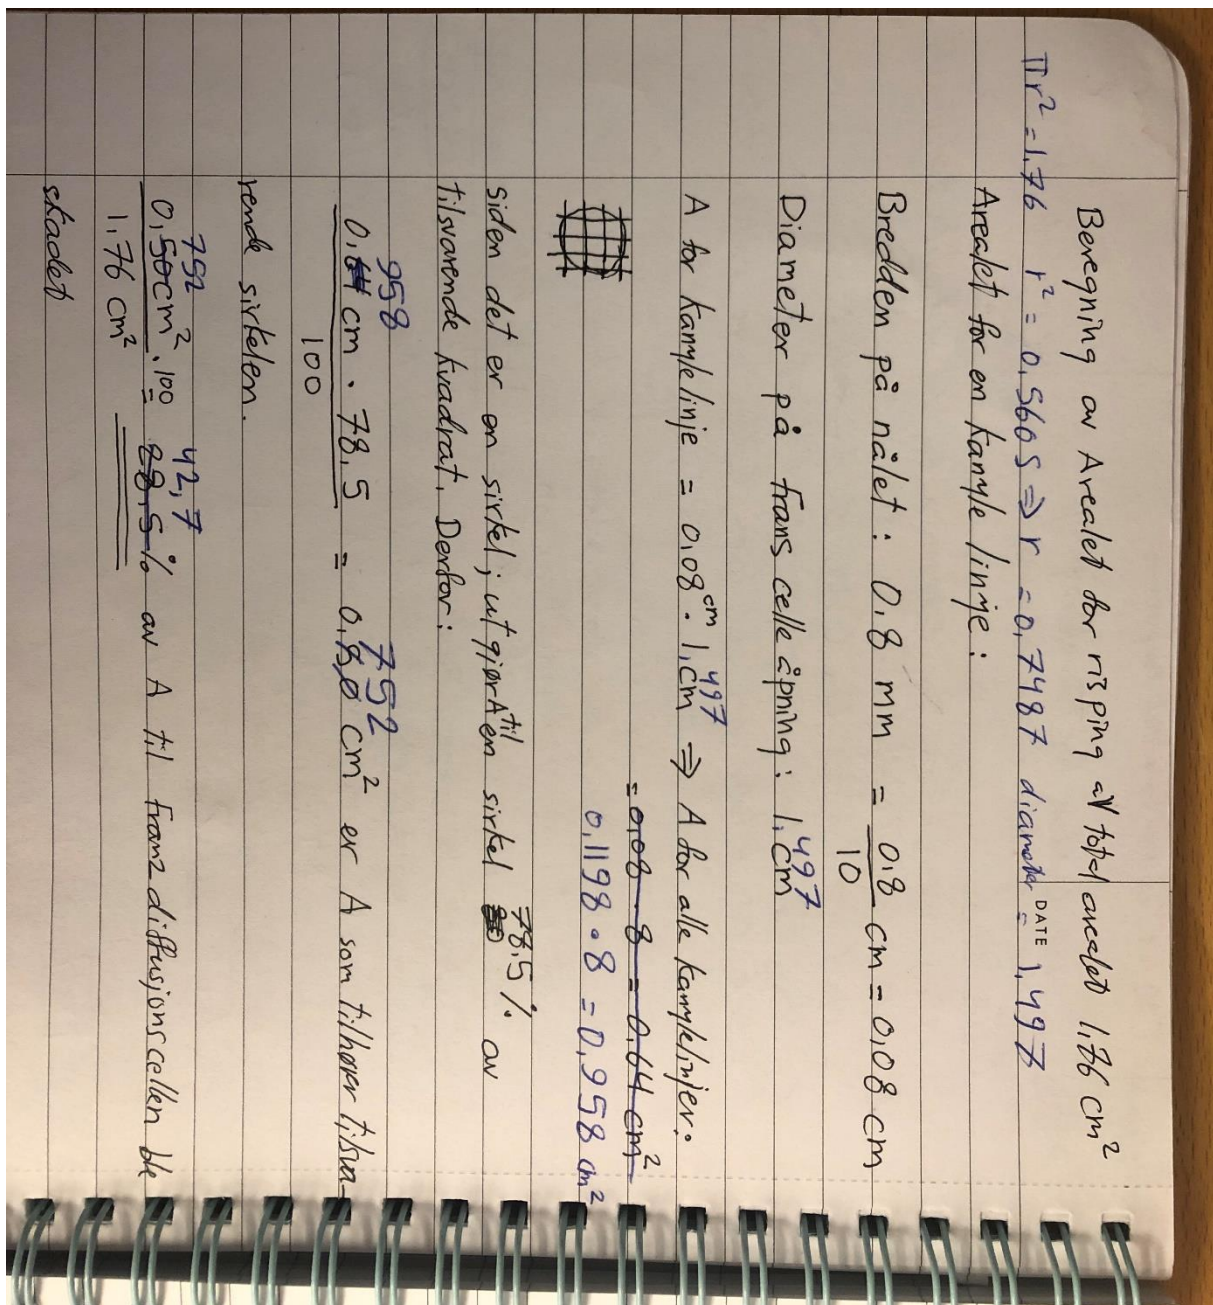 Beregning av Arealet for risping av total arealet 1,76 cm²
DATE
πr² = 1,76 r² = 0,5605 ⇒ r = 0,7487 diameter = 1,497
Arealet for en kanyle linje:
Bredden på nålet: 0,8 mm = 0,8/10 cm = 0,08 cm
Diameter på frans celle åpning: 1,497 cm
A for kanylelinje = 0,08 cm · 1,497 cm ⇒ A for alle kanylelinjer:
= 0,08 · 8 = 0,64 cm²
0,1198 · 8 = 0,958 cm²
siden det er en sirkel; utgjør A til en sirkel 78,5 % av
tilsvarende kvadrat. Derfor:
0,958 cm · 78,5 / 100 = 0,752 cm² er A som tilhører tilsva-
rende sirkelen.
0,752 cm² / 1,76 cm² · 100 = 42,7 28,5 % av A til franz diffusjonscellen ble
skadet